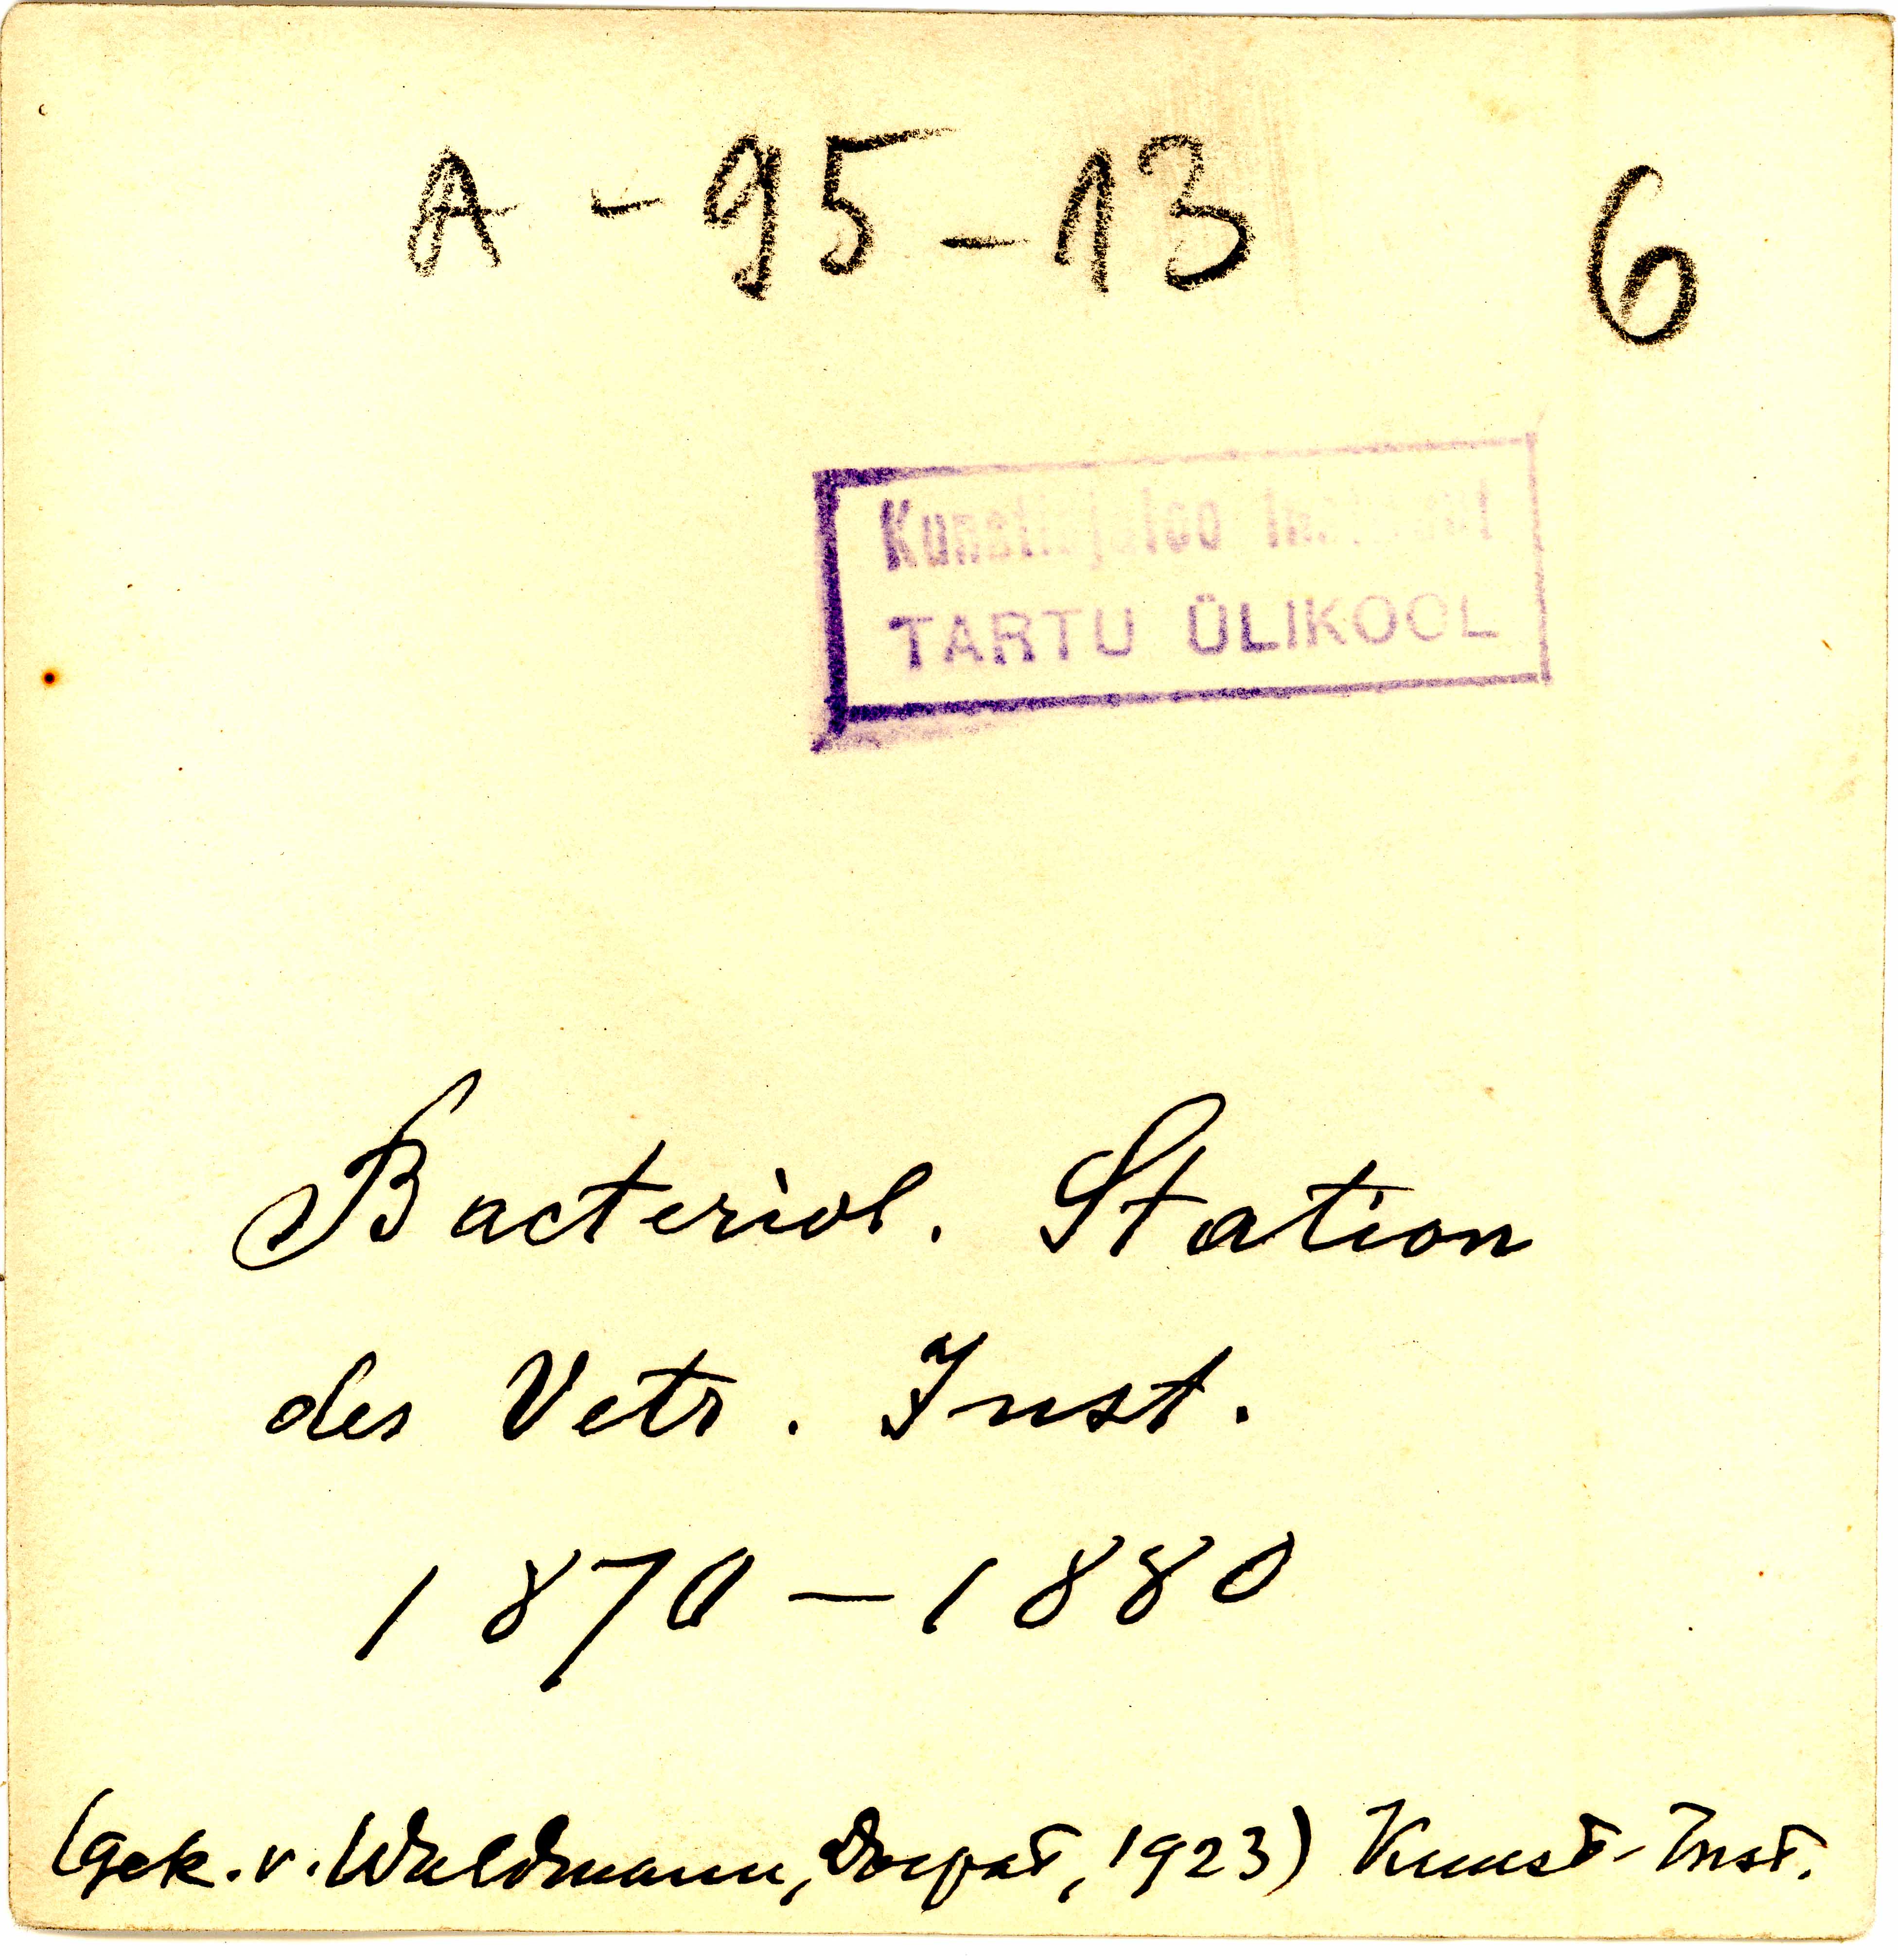 A - 95 - 13 6
Kunstiajaloo Instituut
TARTU ÜLIKOOL
Bacteriol. Station
des Vetr. Inst.
1870 - 1880
(gek. v. Waldmann, Dorpat, 1923) Kunst-Inst.